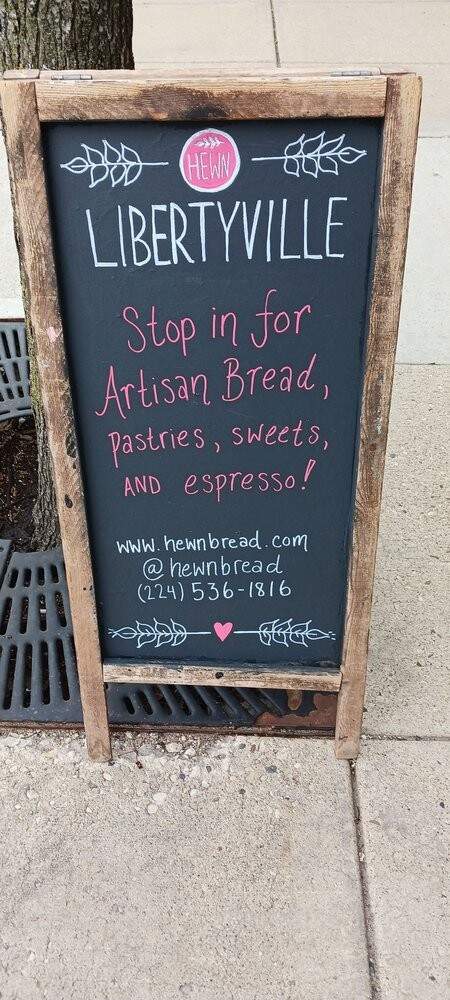 HEWN
LIBERTYVILLE
Stop in for
Artisan Bread,
pastries, sweets,
AND espresso!
www.hewnbread.com
@hewnbread
(224) 536-1816